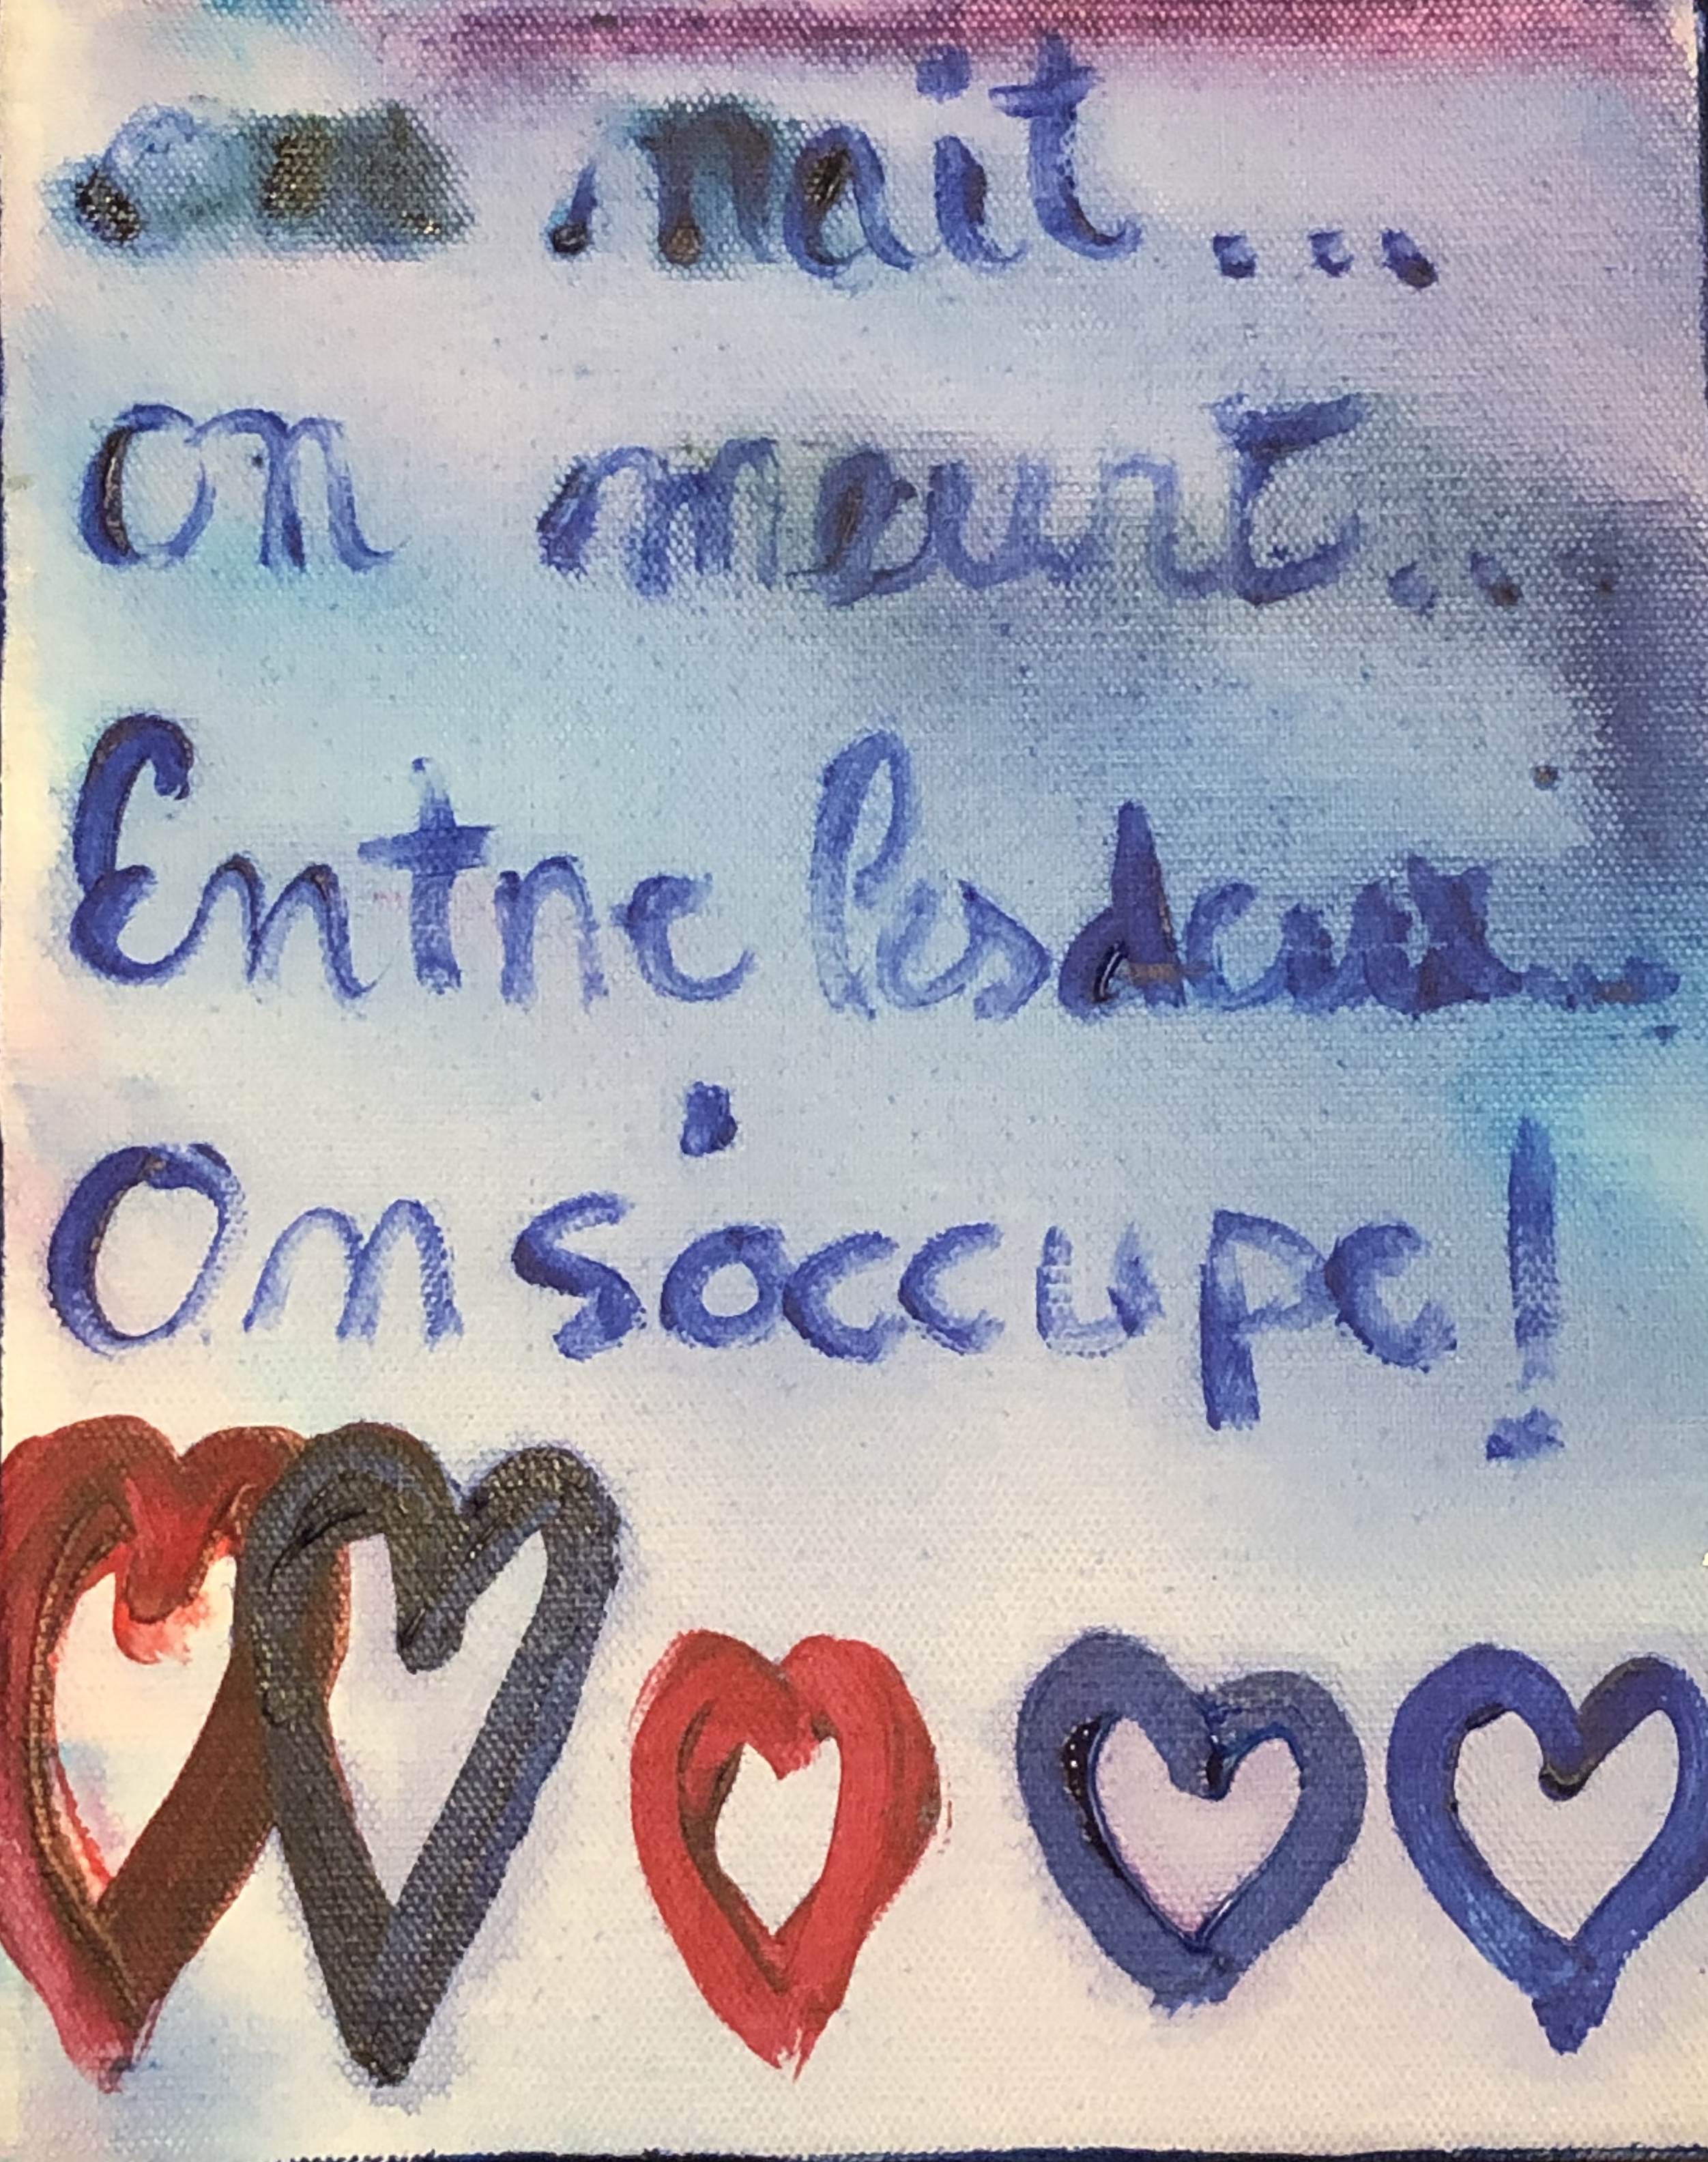 nait...
on meurt...
Entre les deux...
On s'occupe!